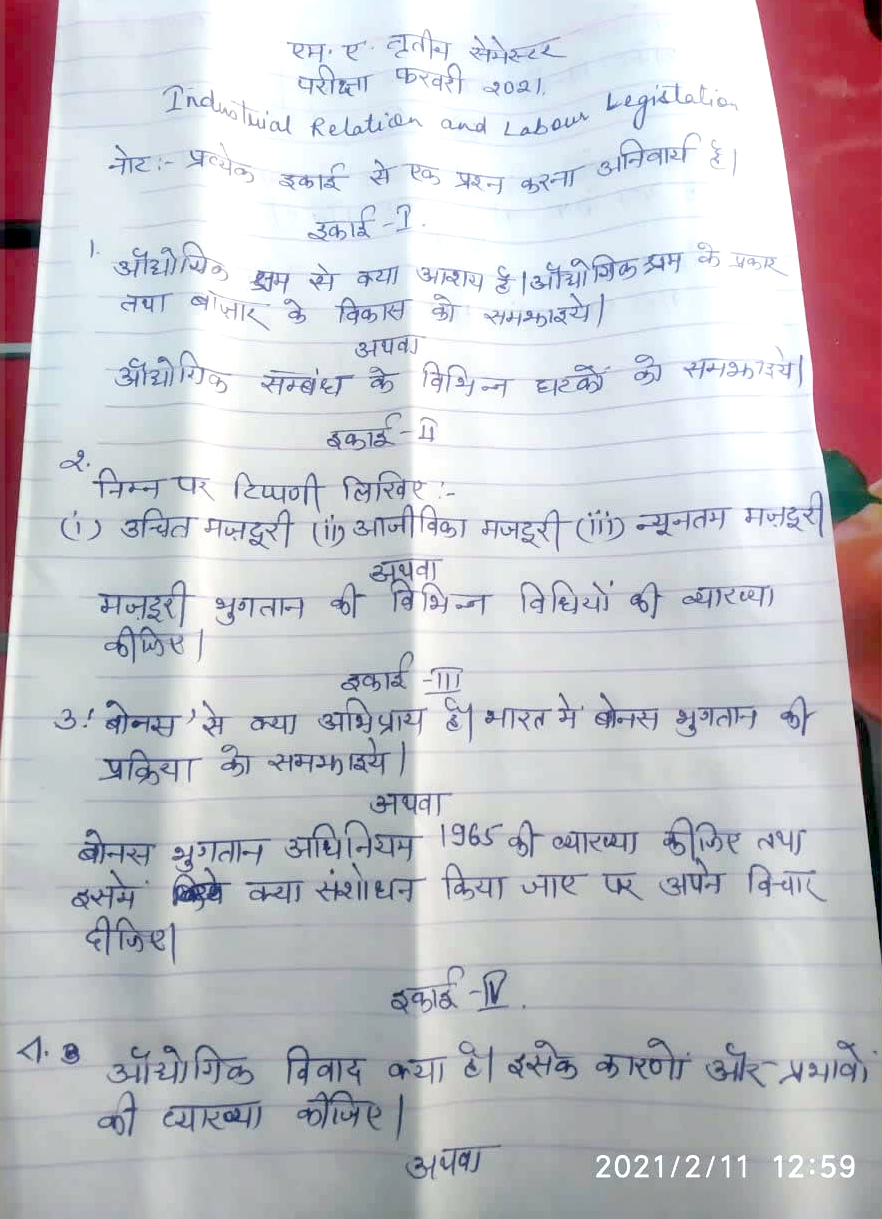 एम. ए. तृतीय सेमेस्टर
परीक्षा फरवरी २०२१.
Industrial Relation and Labour Legistation
नोट:- प्रत्येक इकाई से एक प्रश्न करना अनिवार्य है।
इकाई - I.
1. औद्योगिक श्रम से क्या आशय है। औद्योगिक श्रम के प्रकार
तथा बाज़ार के विकास को समझाइये।
अथवा
औद्योगिक सम्बंध के विभिन्न घटकों को समझाइये।
इकाई - II
२. निम्न पर टिप्पणी लिखिए :-
(i) उचित मज़दूरी (ii) आजीविका मजदूरी (iii) न्यूनतम मज़दूरी
अथवा
मज़दूरी भुगतान की विभिन्न विधियों की व्याख्या
कीजिए।
इकाई - III
3. 'बोनस' से क्या अभिप्राय है। भारत में बोनस भुगतान की
प्रक्रिया को समझाइये।
अथवा
बोनस भुगतान अधिनियम 1965 की व्याख्या कीजिए तथा
इसमें क्या संशोधन किया जाए पर अपने विचार
दीजिए।
इकाई - IV.
4. औद्योगिक विवाद क्या है। इसके कारणों और प्रभावों
की व्याख्या कीजिए।
अथवा
2021/2/11 12:59